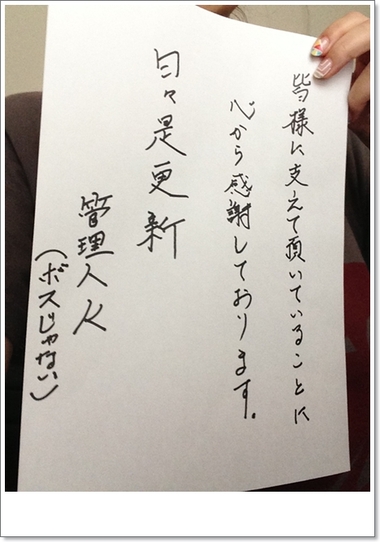 皆様に支えて頂いていることに
心から感謝しております。
日々是更新
管理人K
(ボスじゃない)